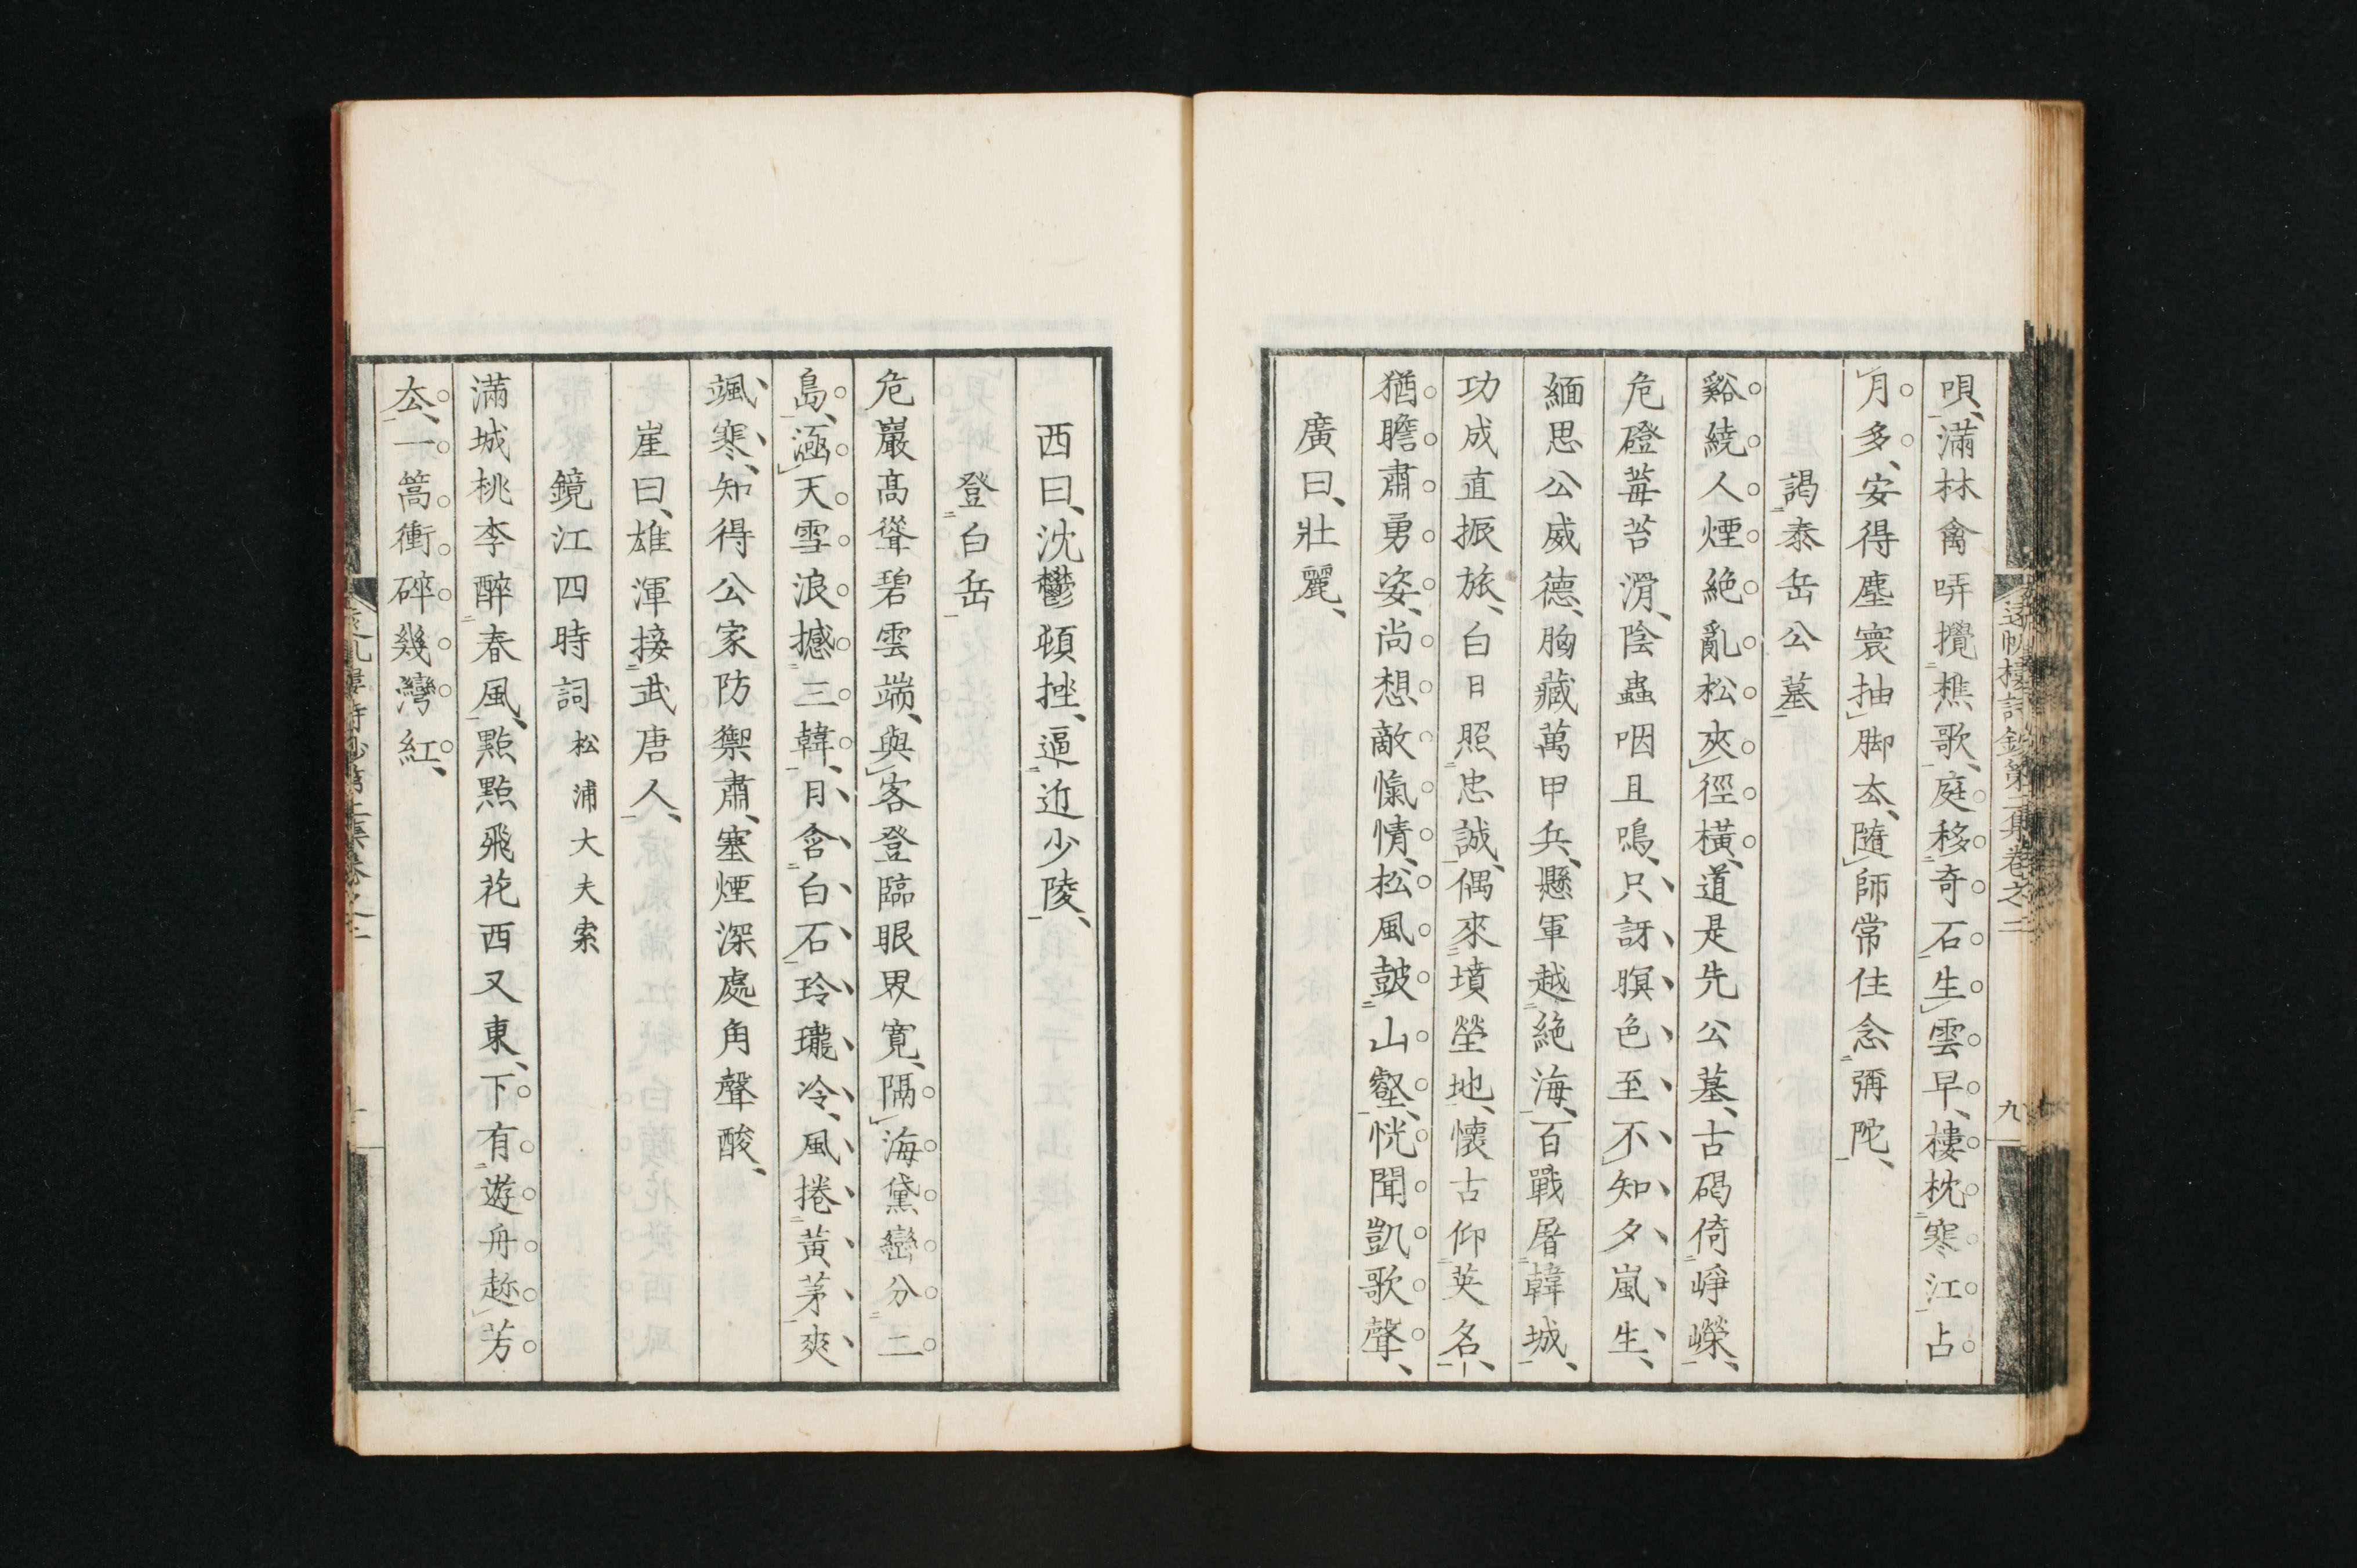 唄、滿林禽哢攪樵歌、庭移奇石生雲早、樓枕寒江占
月多、安得塵寰抽脚去、隨師常住念彌陀、
謁泰岳公墓
谿繞人煙絶亂松夾徑橫、道是先公墓、古碣倚崢嶸、
危磴莓苔滑、陰蟲咽且鳴、只訝暝色至、不知夕嵐生、
緬思公威德、胸藏萬甲兵、懸軍越絶海、百戰屠韓城、
功成直振旅、白日照忠誠、偶來墳塋地、懷古仰英名、
猶瞻肅勇姿、尚想敵愾情、松風鼓山壑、恍聞凱歌聲、
廣曰、壯麗、
西曰、沈鬱頓挫、逼近少陵、
登白岳
危巖高聳碧雲端、與客登臨眼界寬、隔海黛巒分二
島、涵天雪浪撼三韓、月含白石玲瓏冷、風捲黃茅爽
颯寒、知得公家防禦肅、塞煙深處角聲酸、
崖曰、雄渾接武唐人、
鏡江四時詞 松浦大夫索
滿城桃李醉春風、點點飛花西又東、下有遊舟趂芳
去、一篙衝碎幾灣紅、